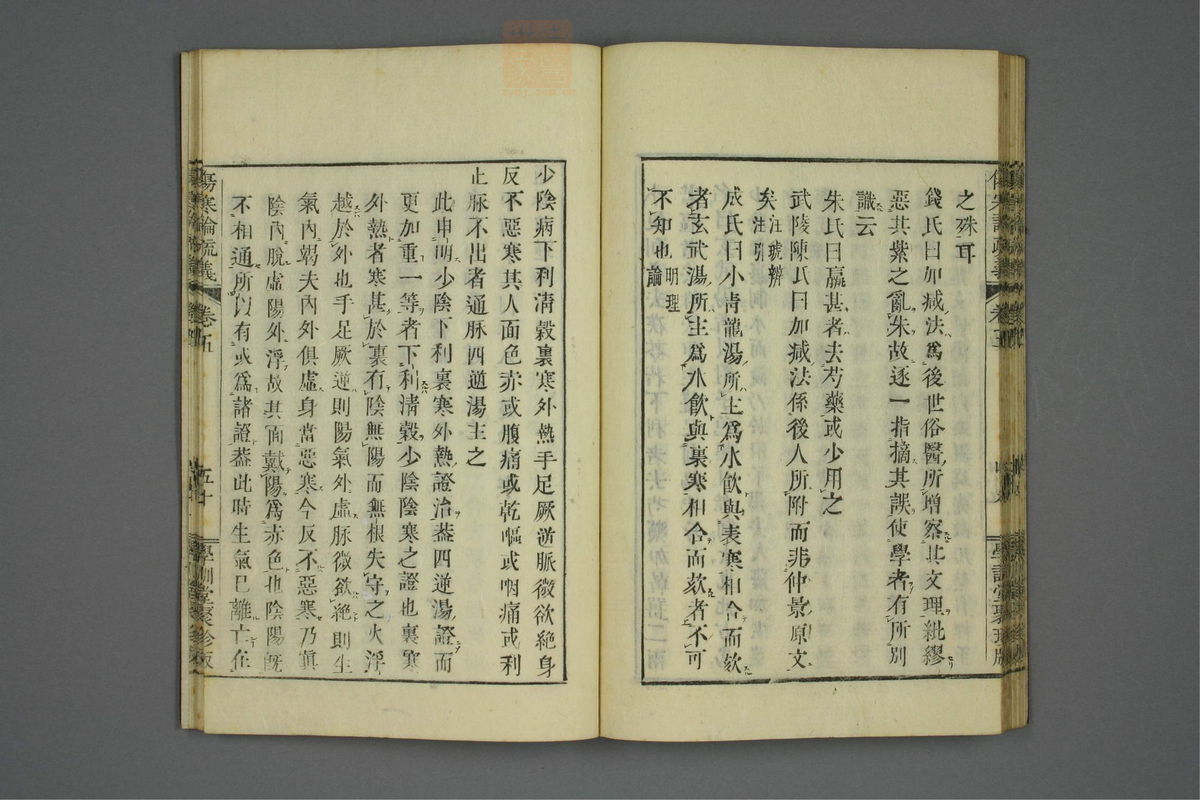 之殊耳
錢氏曰加减法爲後世俗醫所增察其文理紕繆
惡其紫之亂朱故逐一指摘其誤使學者有所别
識云
朱氏曰羸甚者去芍藥或少用之
武陵陳氏曰加减法係後人所附而非仲景原文
矣注琥辨
注引
成氏曰小青龍湯所主爲水飲與表寒相合而欬
者玄武湯所主爲水飲與裏寒相合而欬者不可
不知也明理
論
少陰病下利清穀裏寒外熱手足厥逆脈微欲絶身
反不惡寒其人面色赤或腹痛或乾嘔或咽痛或利
止脉不出者通脉四逆湯主之
此申明少陰下利裏寒外熱證治葢四逆湯證而
更加重一等者下利清穀少陰陰寒之證也裏寒
外熱者寒甚於裏有陰無陽而無根失守之火浮
越於外也手足厥逆則陽氣外虛脉微欲絶則生
氣內竭夫內外俱虛身當惡寒今反不惡寒乃眞
陰內脫虛陽外浮故其面戴陽爲赤色也陰陽旣
不相通所以有或爲諸證葢此時生氣已離亡在
傷寒論疏義
卷五
五十
學訓堂聚珍版